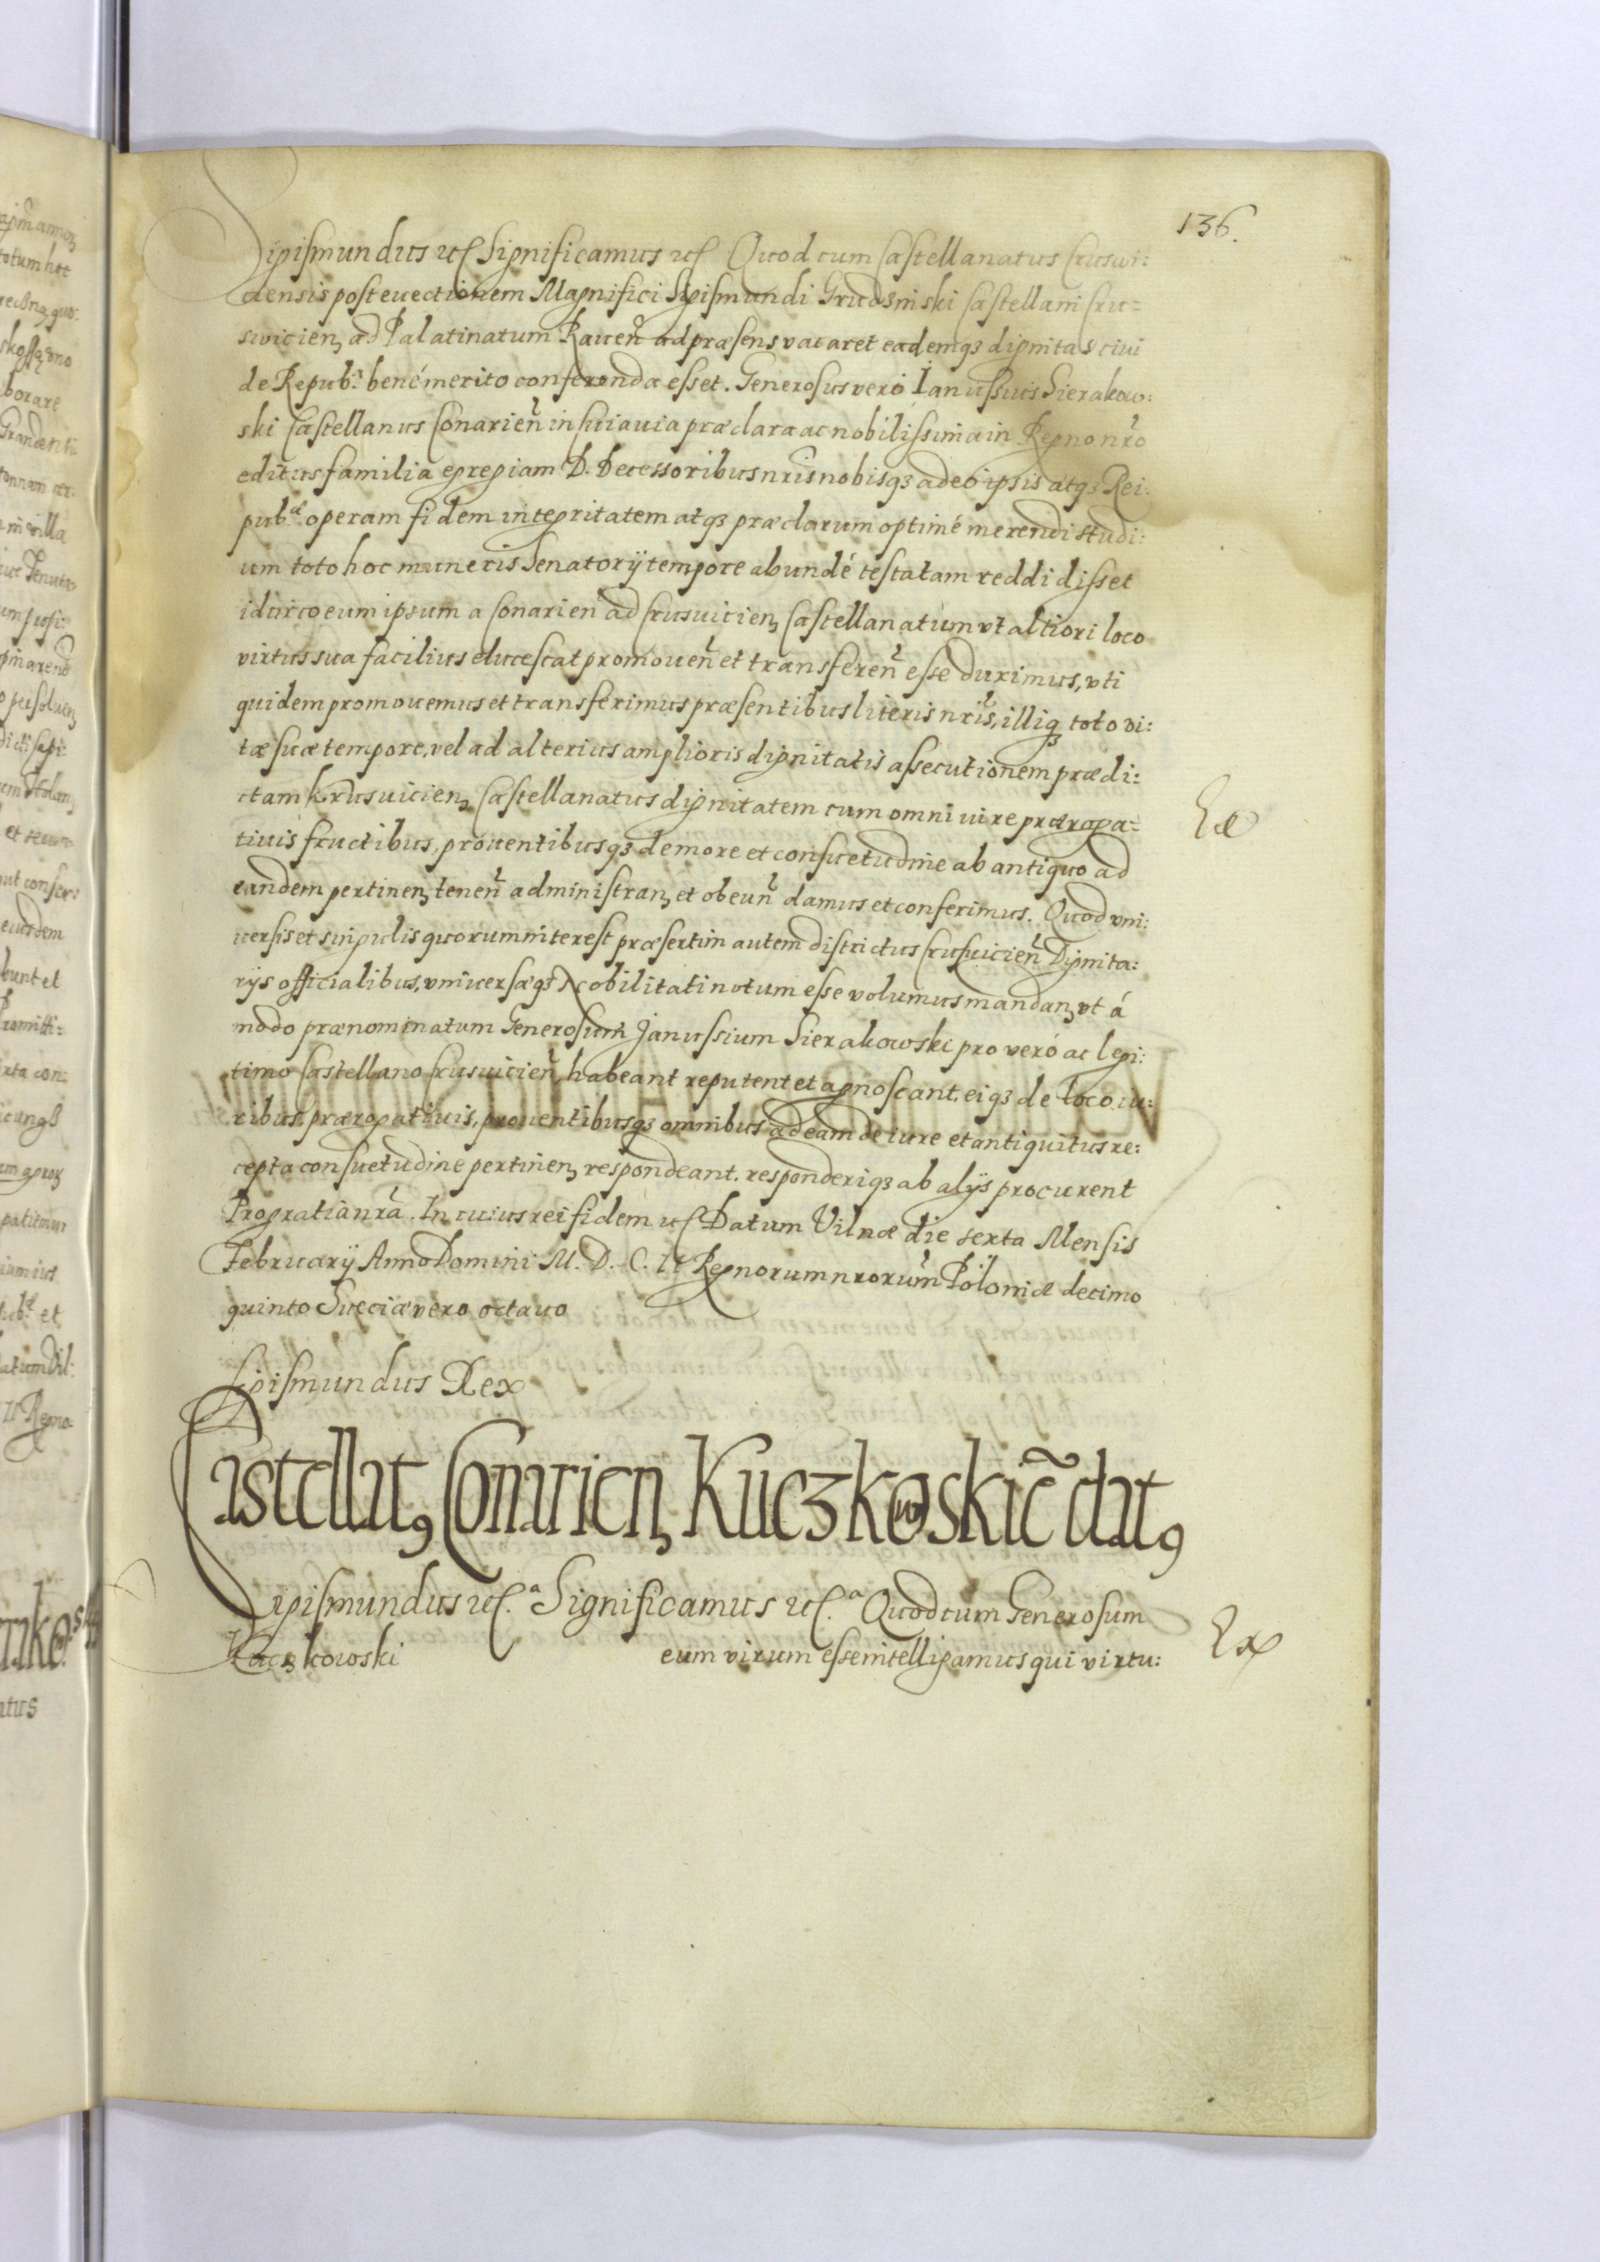 136.
Sigismundus etc Significamus etc Quod cum Castellanatus Crusvi:
ciensis post euectionem Magnifici Sigismundi Grudzinski Castellani Cru=
swicien, ad Palatinatum Rauen̄ ad præsens vacaret eademq3 dignitas ciui
de Repub.ca bené merito conferenda esset. Generosus veró Ianussius Sierakow:
ski Castellanus Conarien̄ in Cuiauia præclara ac nobilissima in Regno nr̄o
editus familia egregiam D. Decessoribus nr̄is nobisq3 adeó ipsis atq3 Rei:
pub.cæ operam fidem integritatem atq3 præclarum optimé merendi studi:
um toto hoc muneris Senatorÿ tempore abundé testatam reddidisset
idcirco eum ipsum a Conarien̄ ad Crusuicien, Castellanatum vt altiori loco
virtus sua facilius elucescat promouen̄ et transferen̄ esse duximus, vti
quidem promouemus et transferimus præsentibus literis nr̄is, illiq3 toto vi:
tæ suæ tempore, vel ad alterius amplioris dignitatis assecutionem prædi:
ctam Krusuicien, Castellanatus dignitatem cum omni iure præroga=
tiuis fructibus, prouentibusq3 de more et consuetudine ab antiquo ad
eandem pertinen, tenen̄ administran, et obeun̄ damus et conferimus. Quod vni:
uersis et singulis quorum interest præsertim autem districtus Crusuicien̄ Dignita:
rÿs officialibus, vniuersæq3 Nobilitati notum esse volumus mandan, vt á
modo prænominatum Generosum Janussium Sierakowski pro veró ac legi:
timo Castellano Crusuicien̄, habeant reputent et agnoscant, eiq3 de loco iu:
ribus prærogatiuis, prouentibusq3 omnibus ad eam de iure et antiquitus re:
cepta consuetudine pertinen, respondeant. responderiq3 ab alÿs procurent
Pro gratia nr̄a. In cuius rei fidem etc Datum Vilnæ die sexta Mensis
Februarÿ Anno Domini M.D.C.II Regnorum nrorum̄ Poloniæ decimo
quinto Sueciæ vero octauo
Sigismundus Rex
Castellat9 Conarien, Kuczkowskie̅ dat9
Sigismundus etc.a Significamus etc.a Quod cum Generosum
Kuczkowski eum virum esse intelligamus qui virtu:
Ex
Ex